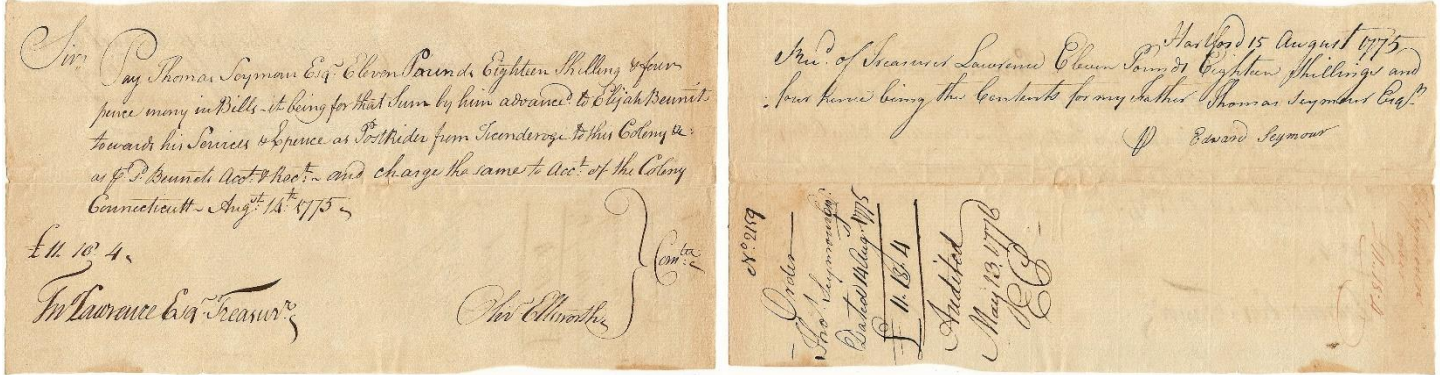 Sir,
Pay Thomas Seymour Esqr. Eleven Pounds Eighteen Shilling & four
pence money in Bills - it being for that Sum by him advancd. to Elijah Bennit
towards his Services & Expence as Postrider from Ticonderoge to this Colony &c:
as pr. sd. Bennets Acct. & Rect. - and charge the same to Acct. of the Colony
Connecticutt - Augst. 14th. 1775 -
£11. 18. 4 -
Jn Lawrence Esqr. Treasurr.
Olivr. Ellsworth
Comtee
Hartford 15 August 1775
Recd. of Treasurer Lawrence Eleven Pounds Eighteen Shillings and
four pence being the Contents for my Father Thomas Seymour Esqr.
Edward Seymour
No. 2159
Order
Thos. Seymour Esqr.
Dated 14 Augt. 1775
£ 11. 18. 4
Audited
May 13. 1776